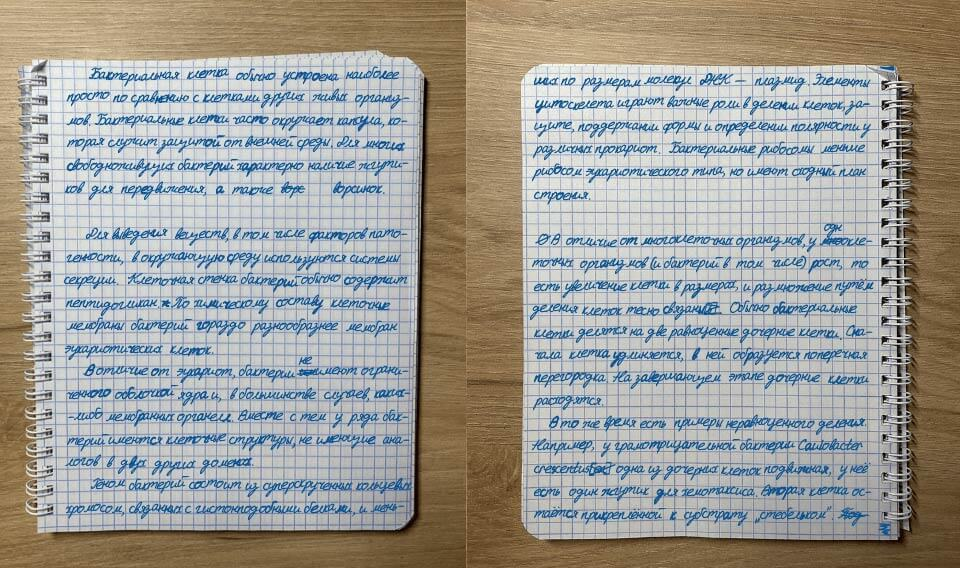 Бактериальная клетка обычно устроена наиболее
просто по сравнению с клетками других живых организ-
мов. Бактериальные клетки часто окружает капсула, ко-
торая служит защитой от внешней среды. Для многих
свободноживущих бактерий характерно наличие жгути-
ков для передвижения, а также ворсинок.
Для выведения веществ, в том числе факторов пато-
генности, в окружающую среду используются системы
секреции. Клеточная стенка бактерий обычно содержит
пептидогликан. По химическому составу клеточные
мембраны бактерий гораздо разнообразнее мембран
эукариотических клеток.
В отличие от эукариот, бактерии не имеют ограни-
ченного оболочкой ядра и, в большинстве случаев, каких-
-либо мембранных органелл. Вместе с тем у ряда бак-
терий имеются клеточные структуры, не имеющие ана-
логов в двух других доменах.
Геном бактерий состоит из суперскрученных кольцевых
хромосом, связанных с гистоноподобными белками, и мень-
ших по размерам молекул ДНК — плазмид. Элементы
цитоскелета играют важные роли в делении клеток, за-
щите, поддержании формы и определении полярности у
различных прокариот. Бактериальные рибосомы меньше
рибосом эукариотического типа, но имеют сходный план
строения.
В отличие от многоклеточных организмов, у однокле-
точных организмов (и бактерий в том числе) рост, то
есть увеличение клетки в размерах, и размножение путём
деления клеток тесно связаны. Обычно бактериальные
клетки делятся на две равноценные дочерние клетки. Сна-
чала клетка удлиняется, в ней образуется поперечная
перегородка. На завершающем этапе дочерние клетки
расходятся.
В то же время есть примеры неравноценного деления.
Например, у грамотрицательной бактерии Caulobacter
crescentus одна из дочерних клеток подвижная, у неё
есть один жгутик для хемотаксиса. Вторая клетка ос-
таётся прикреплённой к субстрату „стебельком".